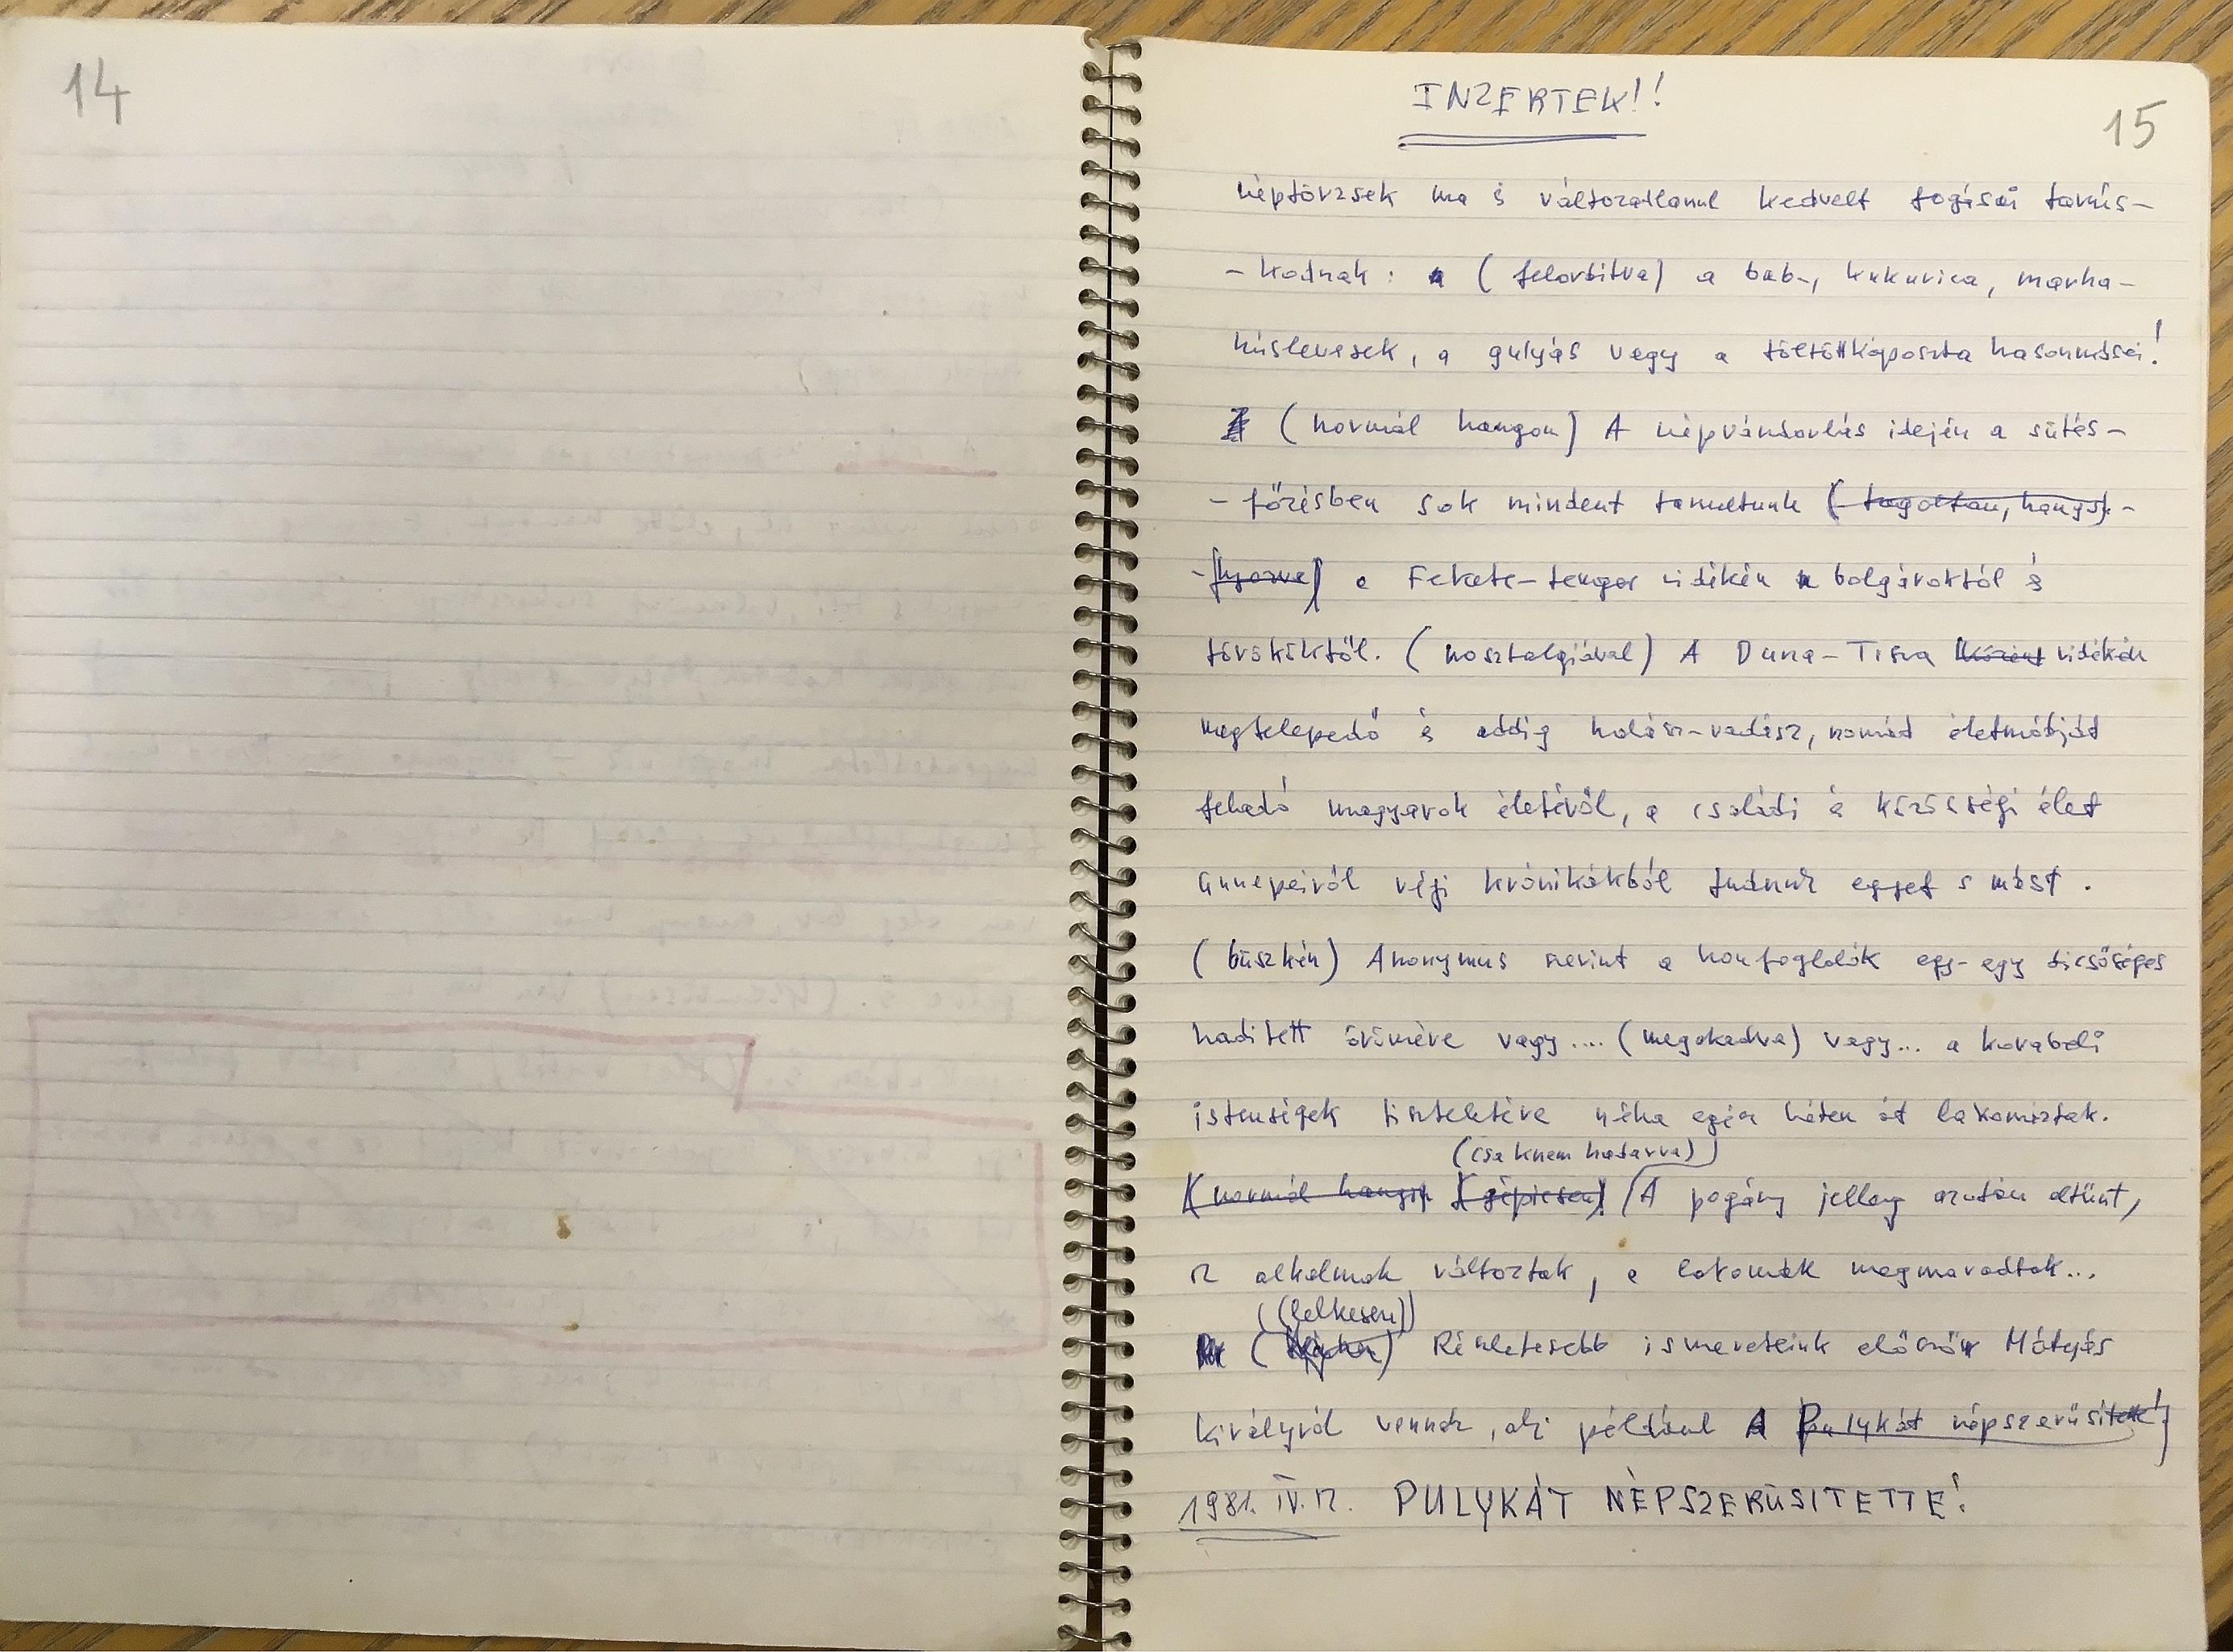 14
15
INZERTEK!!
néptörzsek ma is változatlanul kedvelt fogásai tanús-
- kodnak : (felorbitva) a bab-, kukurica, marha-
húslevesek, a gulyás vagy a töltöttkáposzta hasonmásai!
(normál hangon) A népvándorlás idején a sütés-
- főzésben sok mindent tanultunk (tagoltan, hangs)-
- (lyozva) a Fekete-tenger vidékén bolgároktól és
törököktől. (nosztalgiával) A Duna-Tisza között vidékén
megtelepedő és addig halász-vadász, nomád életmódját
feladó magyarok életéről, a családi és közösségi élet
ünnepeiről régi krónikákból tudunk egyet s mást.
(büszkén) Anonymus szerint a honfoglalók egy-egy dicsőséges
haditett örömére vagy.... (megakadva) vagy... a korabeli
istenségek tiszteletére néha egész héten át lakomáztak.
(csaknem hadarva)
(normál hangon) (gépiesen) A pogány jelleg azután eltűnt,
az alkalmak változtak, a lakomák megmaradtak...
(lelkesen)
Részletesebb ismereteink először Mátyás
királyról vannak, aki például A Pulykát népszerűsítette!
1981. IV. 12. PULYKÁT NÉPSZERŰSITETTE!